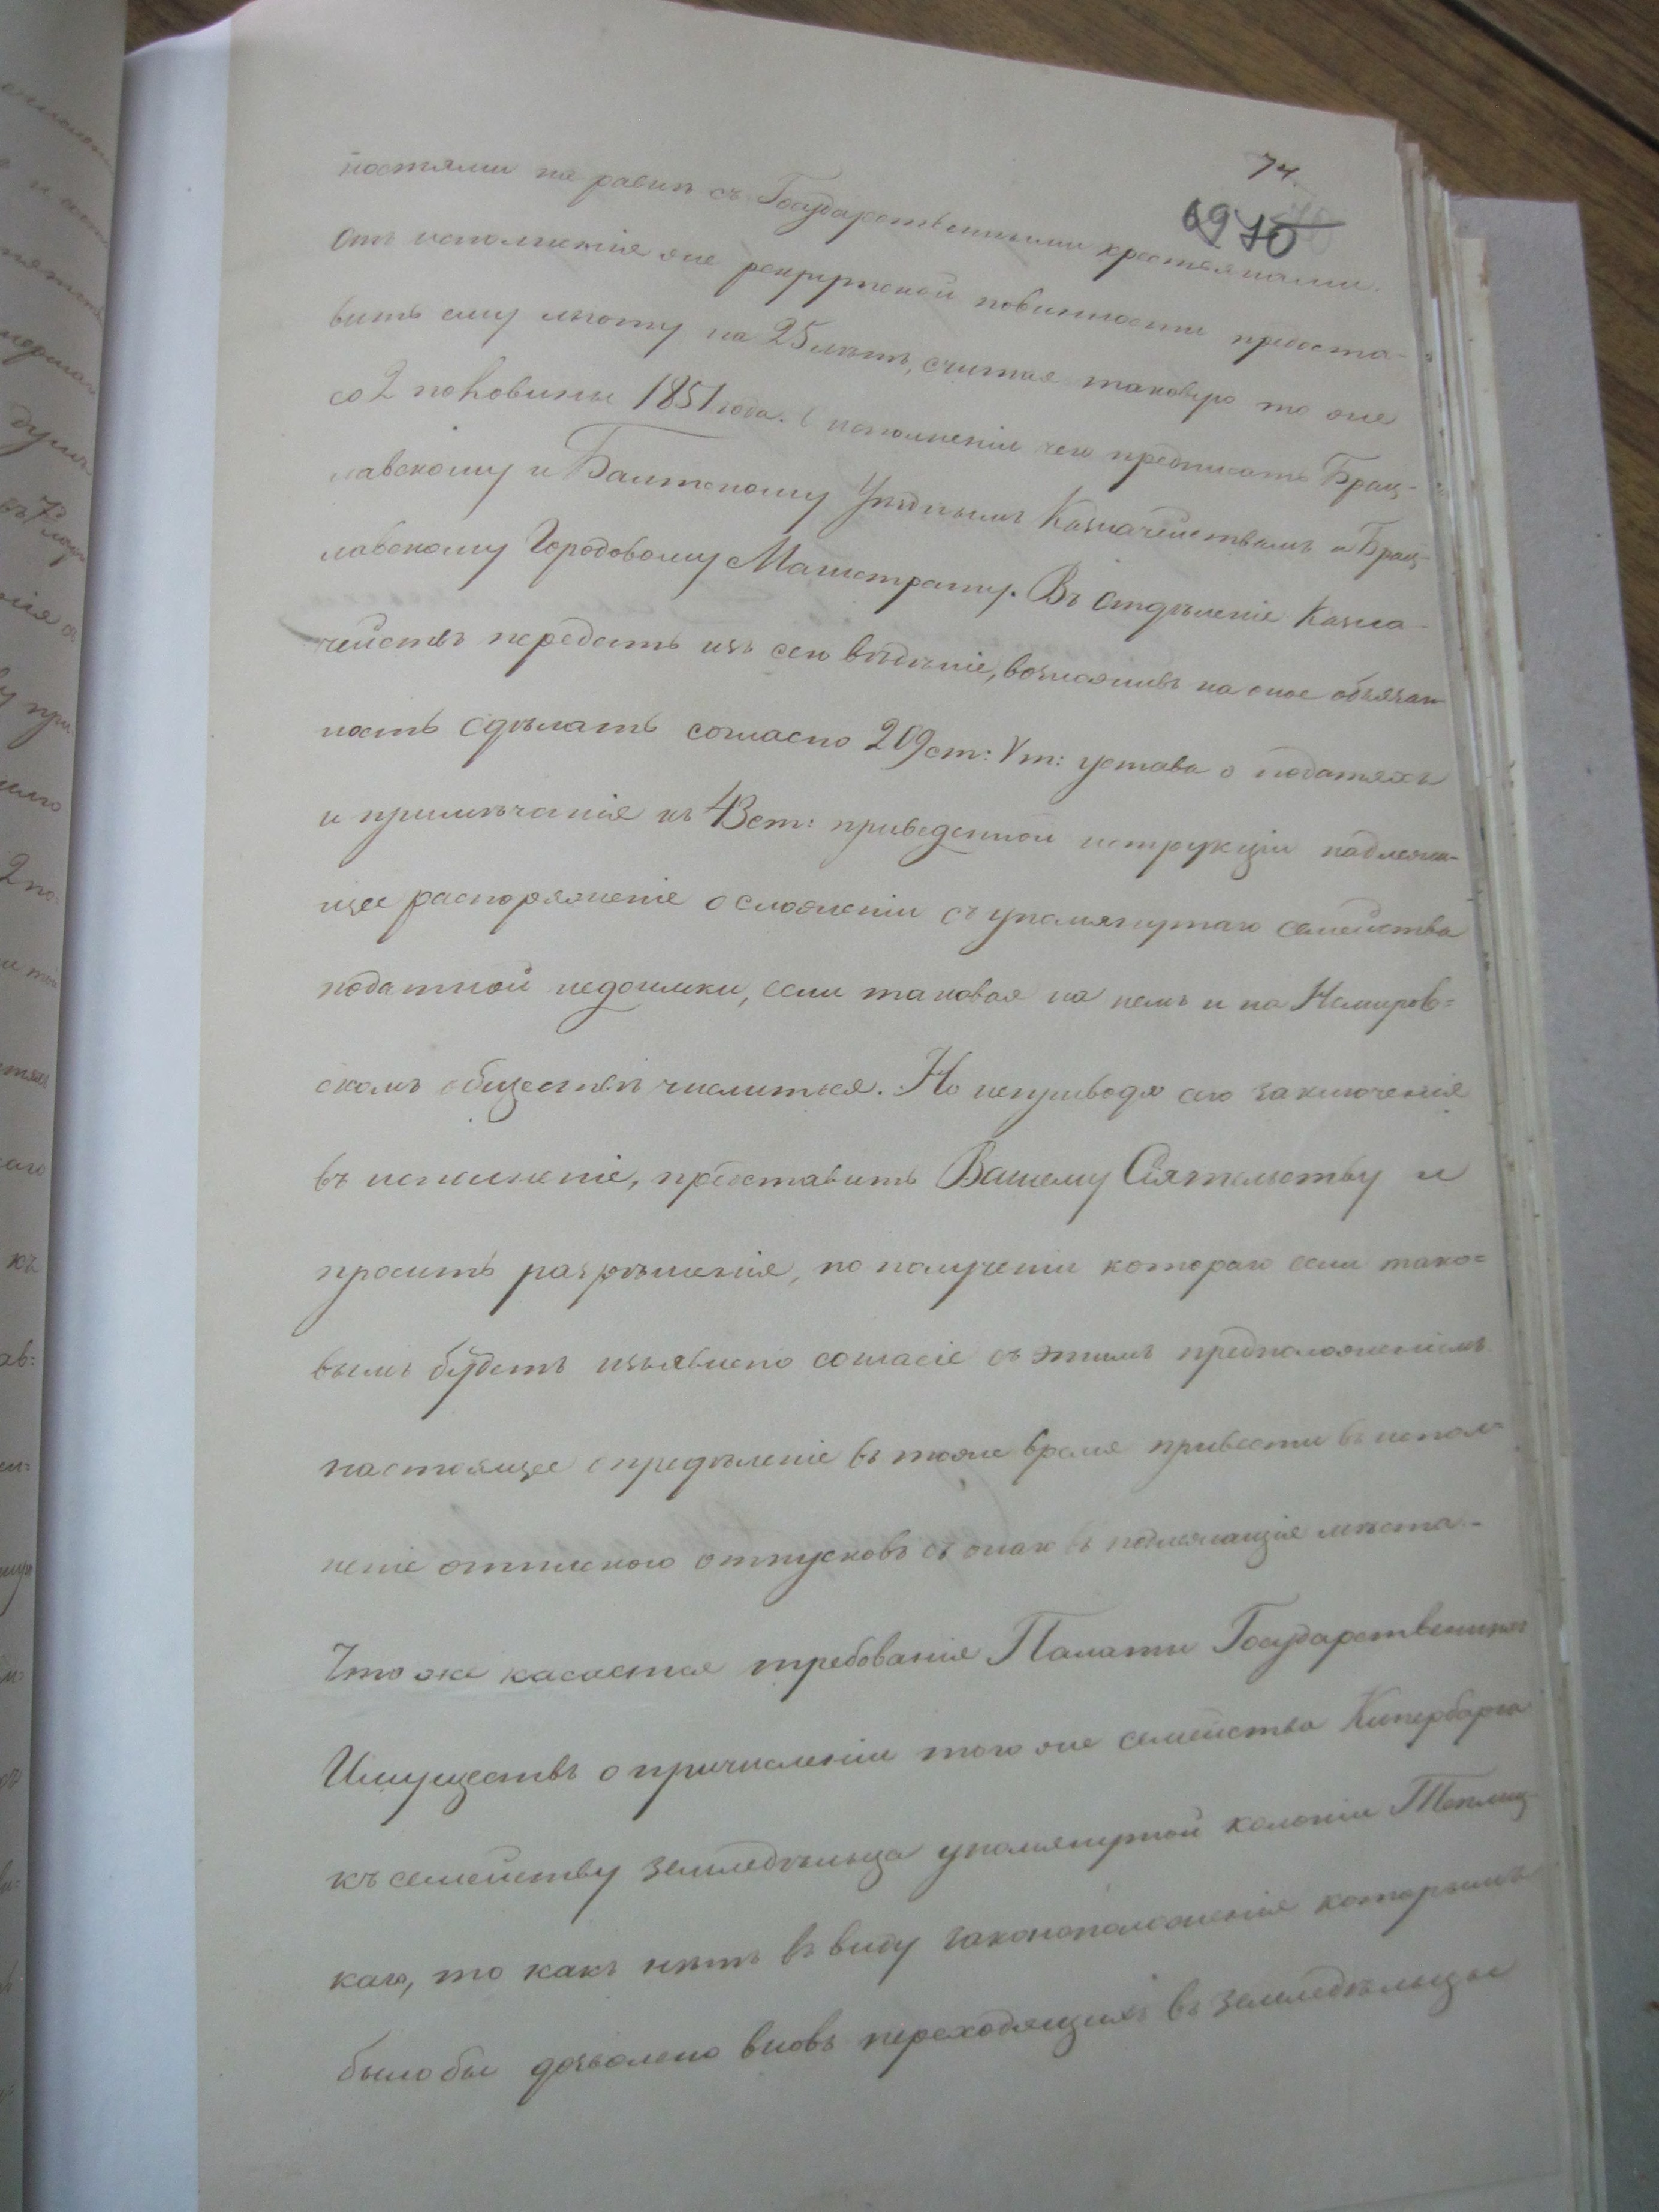 74.
69 70
ностями на равнѣ съ Государственными крестьянами.
Отъ исполненія же рекрутской повинности предоста-
вить ему льготу на 25 лѣтъ, считая таковую то же
со 2 половины 1851 года. О исполненіи чего предписать Брац-
лавскому и Балтскому Уѣзднымъ Казначействамъ и Брац-
лавскому Городовому Магистрату. Въ Отдѣленіе Казна-
чействъ передать изъ сего вѣдѣніе, возложивъ на оное обязан
ность сдѣлать согласно 209 ст: V т: устава о податяхъ
и примѣчанія къ 43 ст: приведенной иструкціи надлежа-
щее распоряженіе о сложеніи съ упомянутаго семейства
податной недоимки, если таковая на немъ и на Немиров=
скомъ обществѣ числиться. Но неприводя сего заключенія
въ исполненіе, представить Вашему Сіятельству и
просить разрѣшенія, по полученіи котораго если тако=
вымъ будетъ изъявлено согласіе съ этимъ предположеніемъ
настоящее опредѣленіе въ тоже время привести въ испол-
неніе отпускомъ отпусковъ съ онаго въ надлежащія мѣста.-
Что же касается требованія Палаты Государственныхъ
Имуществъ о причисленіи того же семейства Кипербарга
къ семейству земледѣльца упомянутой колоніи Теплиц-
каго, то какъ нѣтъ въ виду законоположенія которымъ
было бы дозволено вновь переходящихъ въ земледѣльцы